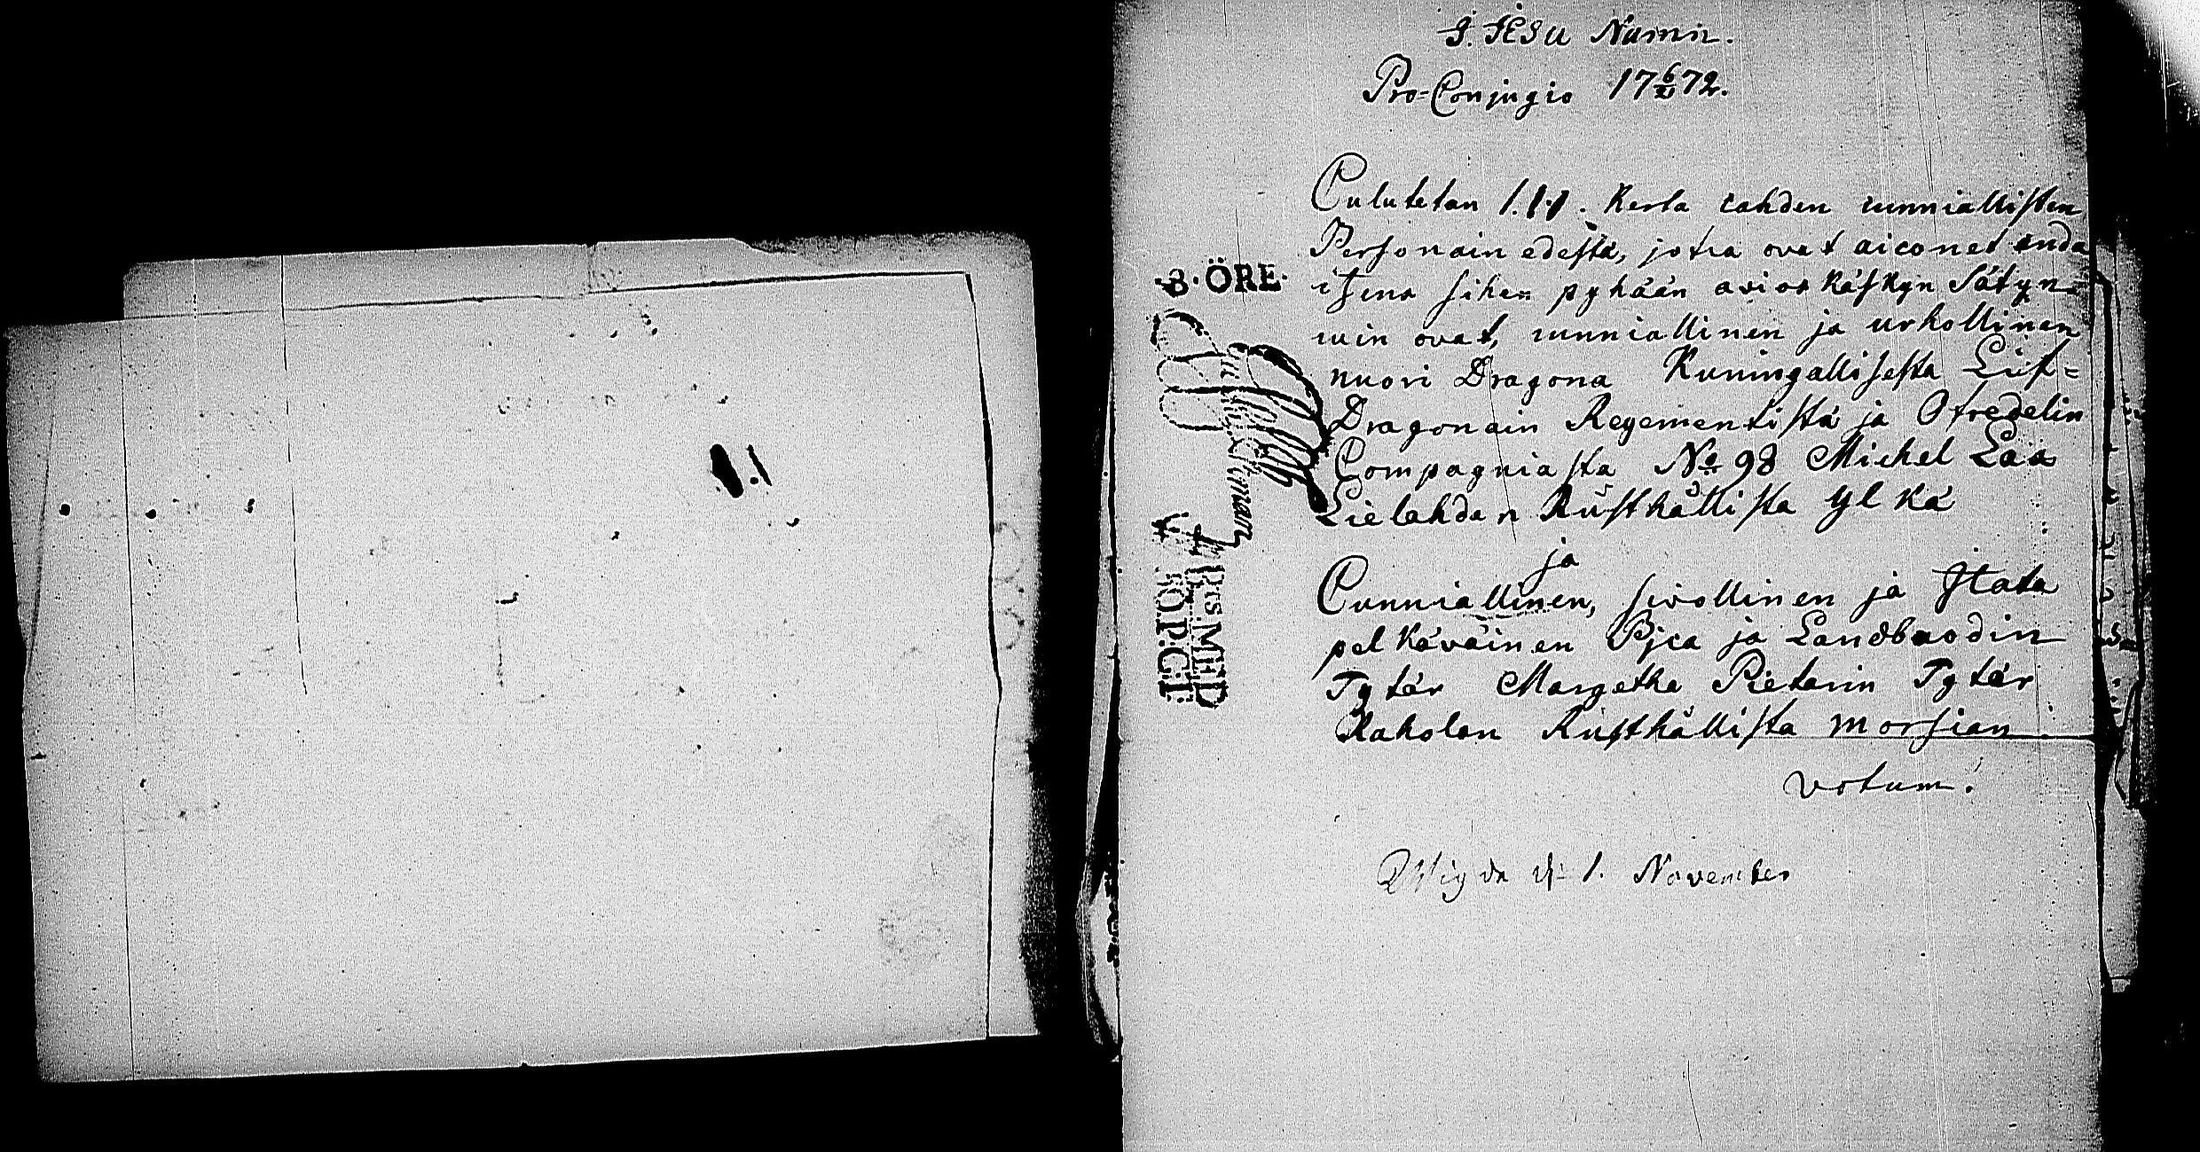 J. JESU Namn.
Pro-Conjugio 17 6/ 72.
Culutetan 1.1.1. Kerta cahden cunniallisten
Personain edestä, jotca ovat aiconet anda
itsens sihen pyhään avios Käskyn Sätyn=
cuin ovat, cunniallinen ja urhollinen
nuori Dragona Kuningallisesta Lif=
Dragonain Regementistä ja Ofredelin
Compagniasta No 98 Michel Laa
Lielahdan Rusthållista ylkä
ja
Cunniallinen, sivollinen ja Jtata
pelkäväinen Pjca ja Landbuodin
Tytär Margetha Pietarin Tytär
Kaholan Rusthållista morsian.
votum!
Wigda d: 1. November
3. ÖRE.